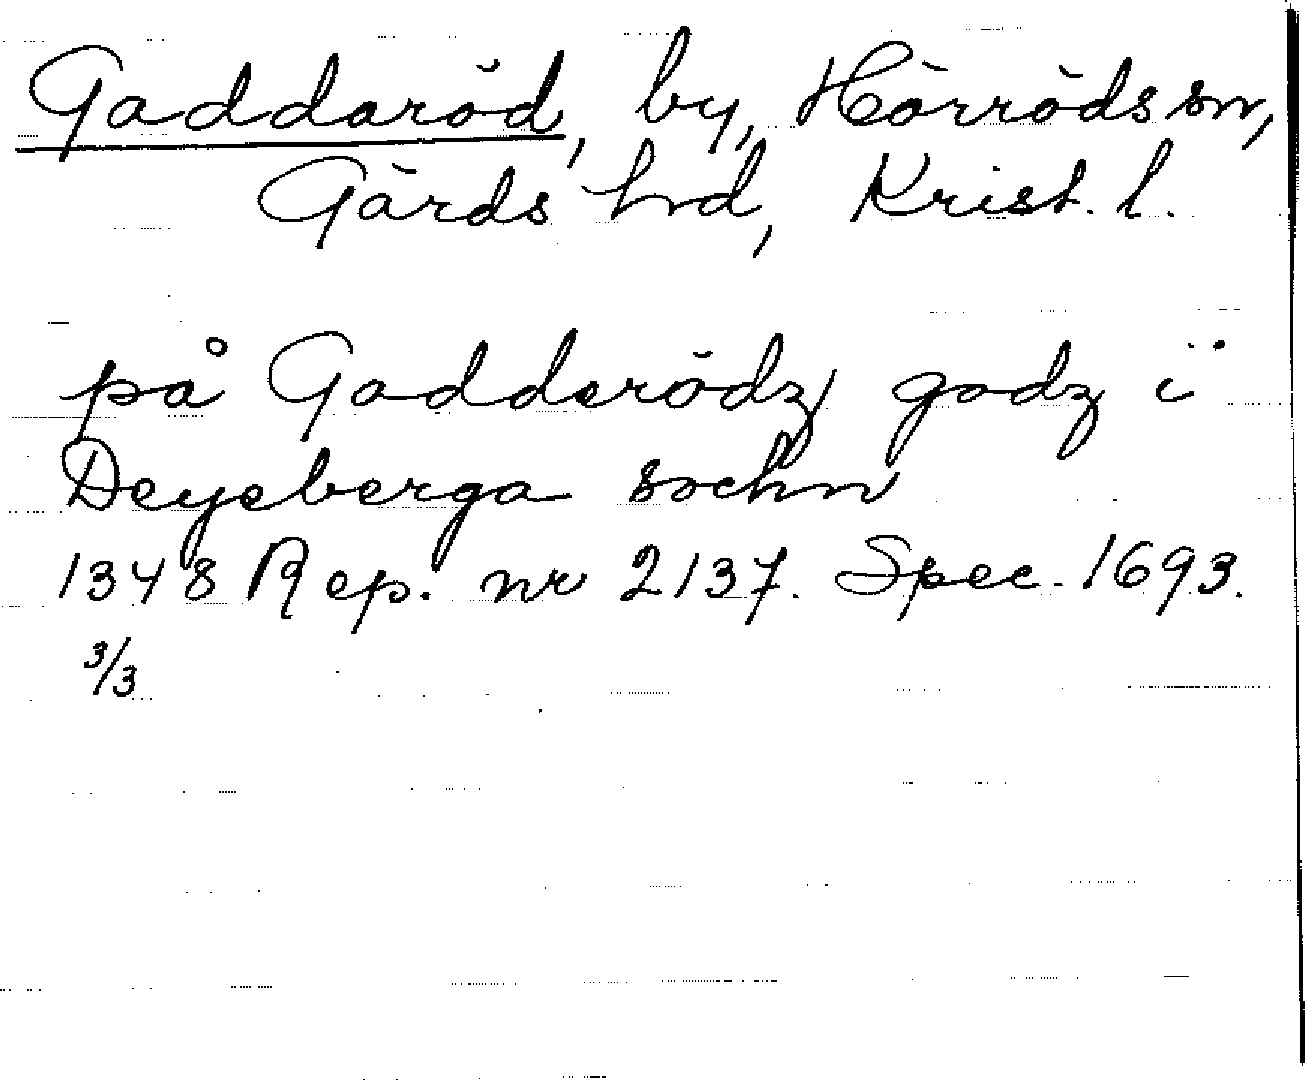 Gaddaröd, by, Hörröds sn,
Gärds hd, Krist. l.
på Gadderödz godz i
Deyeberga sochn
1348 Rep. nr 2137. Spec. 1693.
3/3